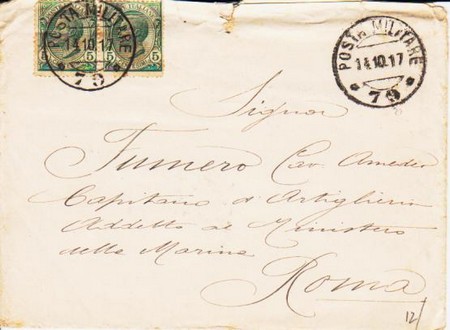 POSTA MILITARE
14.10.17
79
5 5 5
POSTA MILITARE
14.10.17
79
Signor
Fumero Cav Amedeo
Capitano d'Artiglieria
Addetto al Ministero
della Marina
Roma
12/